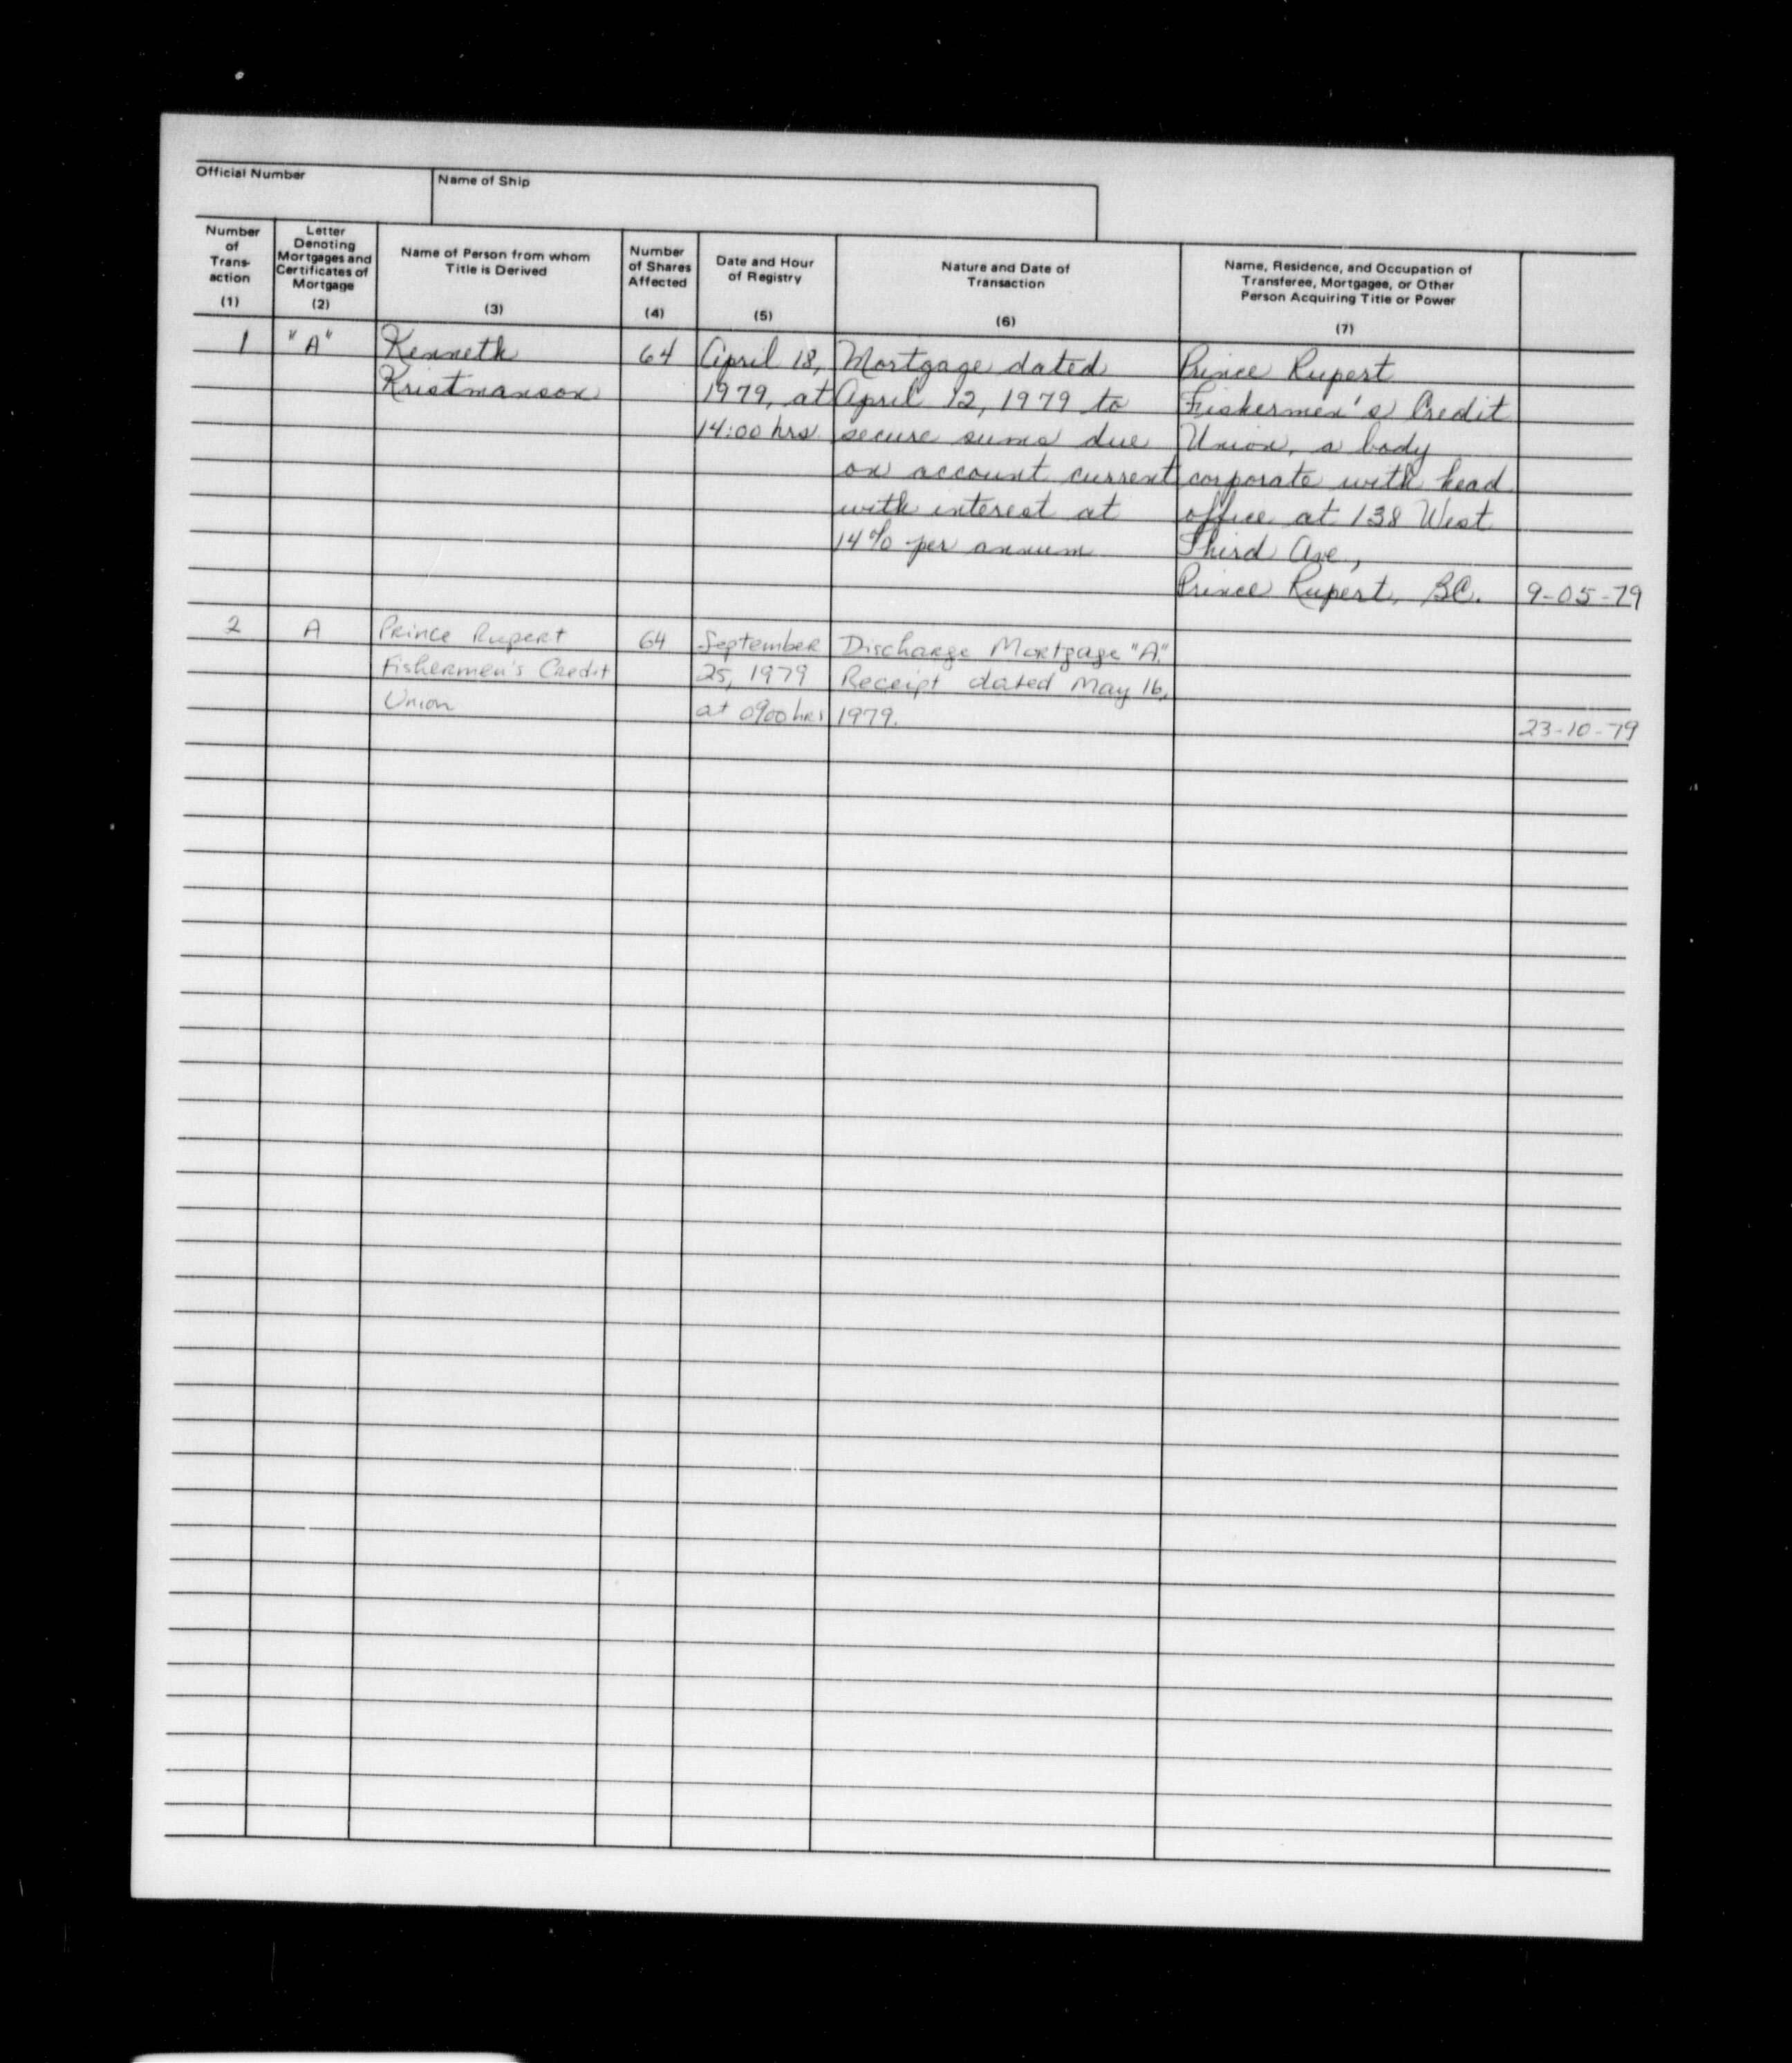 Official Number
Name of Ship
Number of Trans-action (1)
Letter Denoting Mortgages and Certificates of Mortgage (2)
Name of Person from whom Title is Derived (3)
Number of Shares Affected (4)
Date and Hour of Registry (5)
Nature and Date of Transaction (6)
Name, Residence, and Occupation of Transferee, Mortgagee, or Other Person Acquiring Title or Power (7)
1
"A"
Kenneth
Kristmanson
64
April 18,
1979, at
14:00 hrs.
Mortgage dated
April 12, 1979 to
secure sums due
on account current
with interest at
14% per annum
Prince Rupert
Fishermen's Credit
Union, a body
corporate with head
office at 138 West
Third Ave,
Prince Rupert, BC.
9-05-79
2
A
Prince Rupert
Fishermen's Credit
Union
64
September
25, 1979
at 0900 hrs
Discharge Mortgage "A".
Receipt dated May 16,
1979.
23-10-79